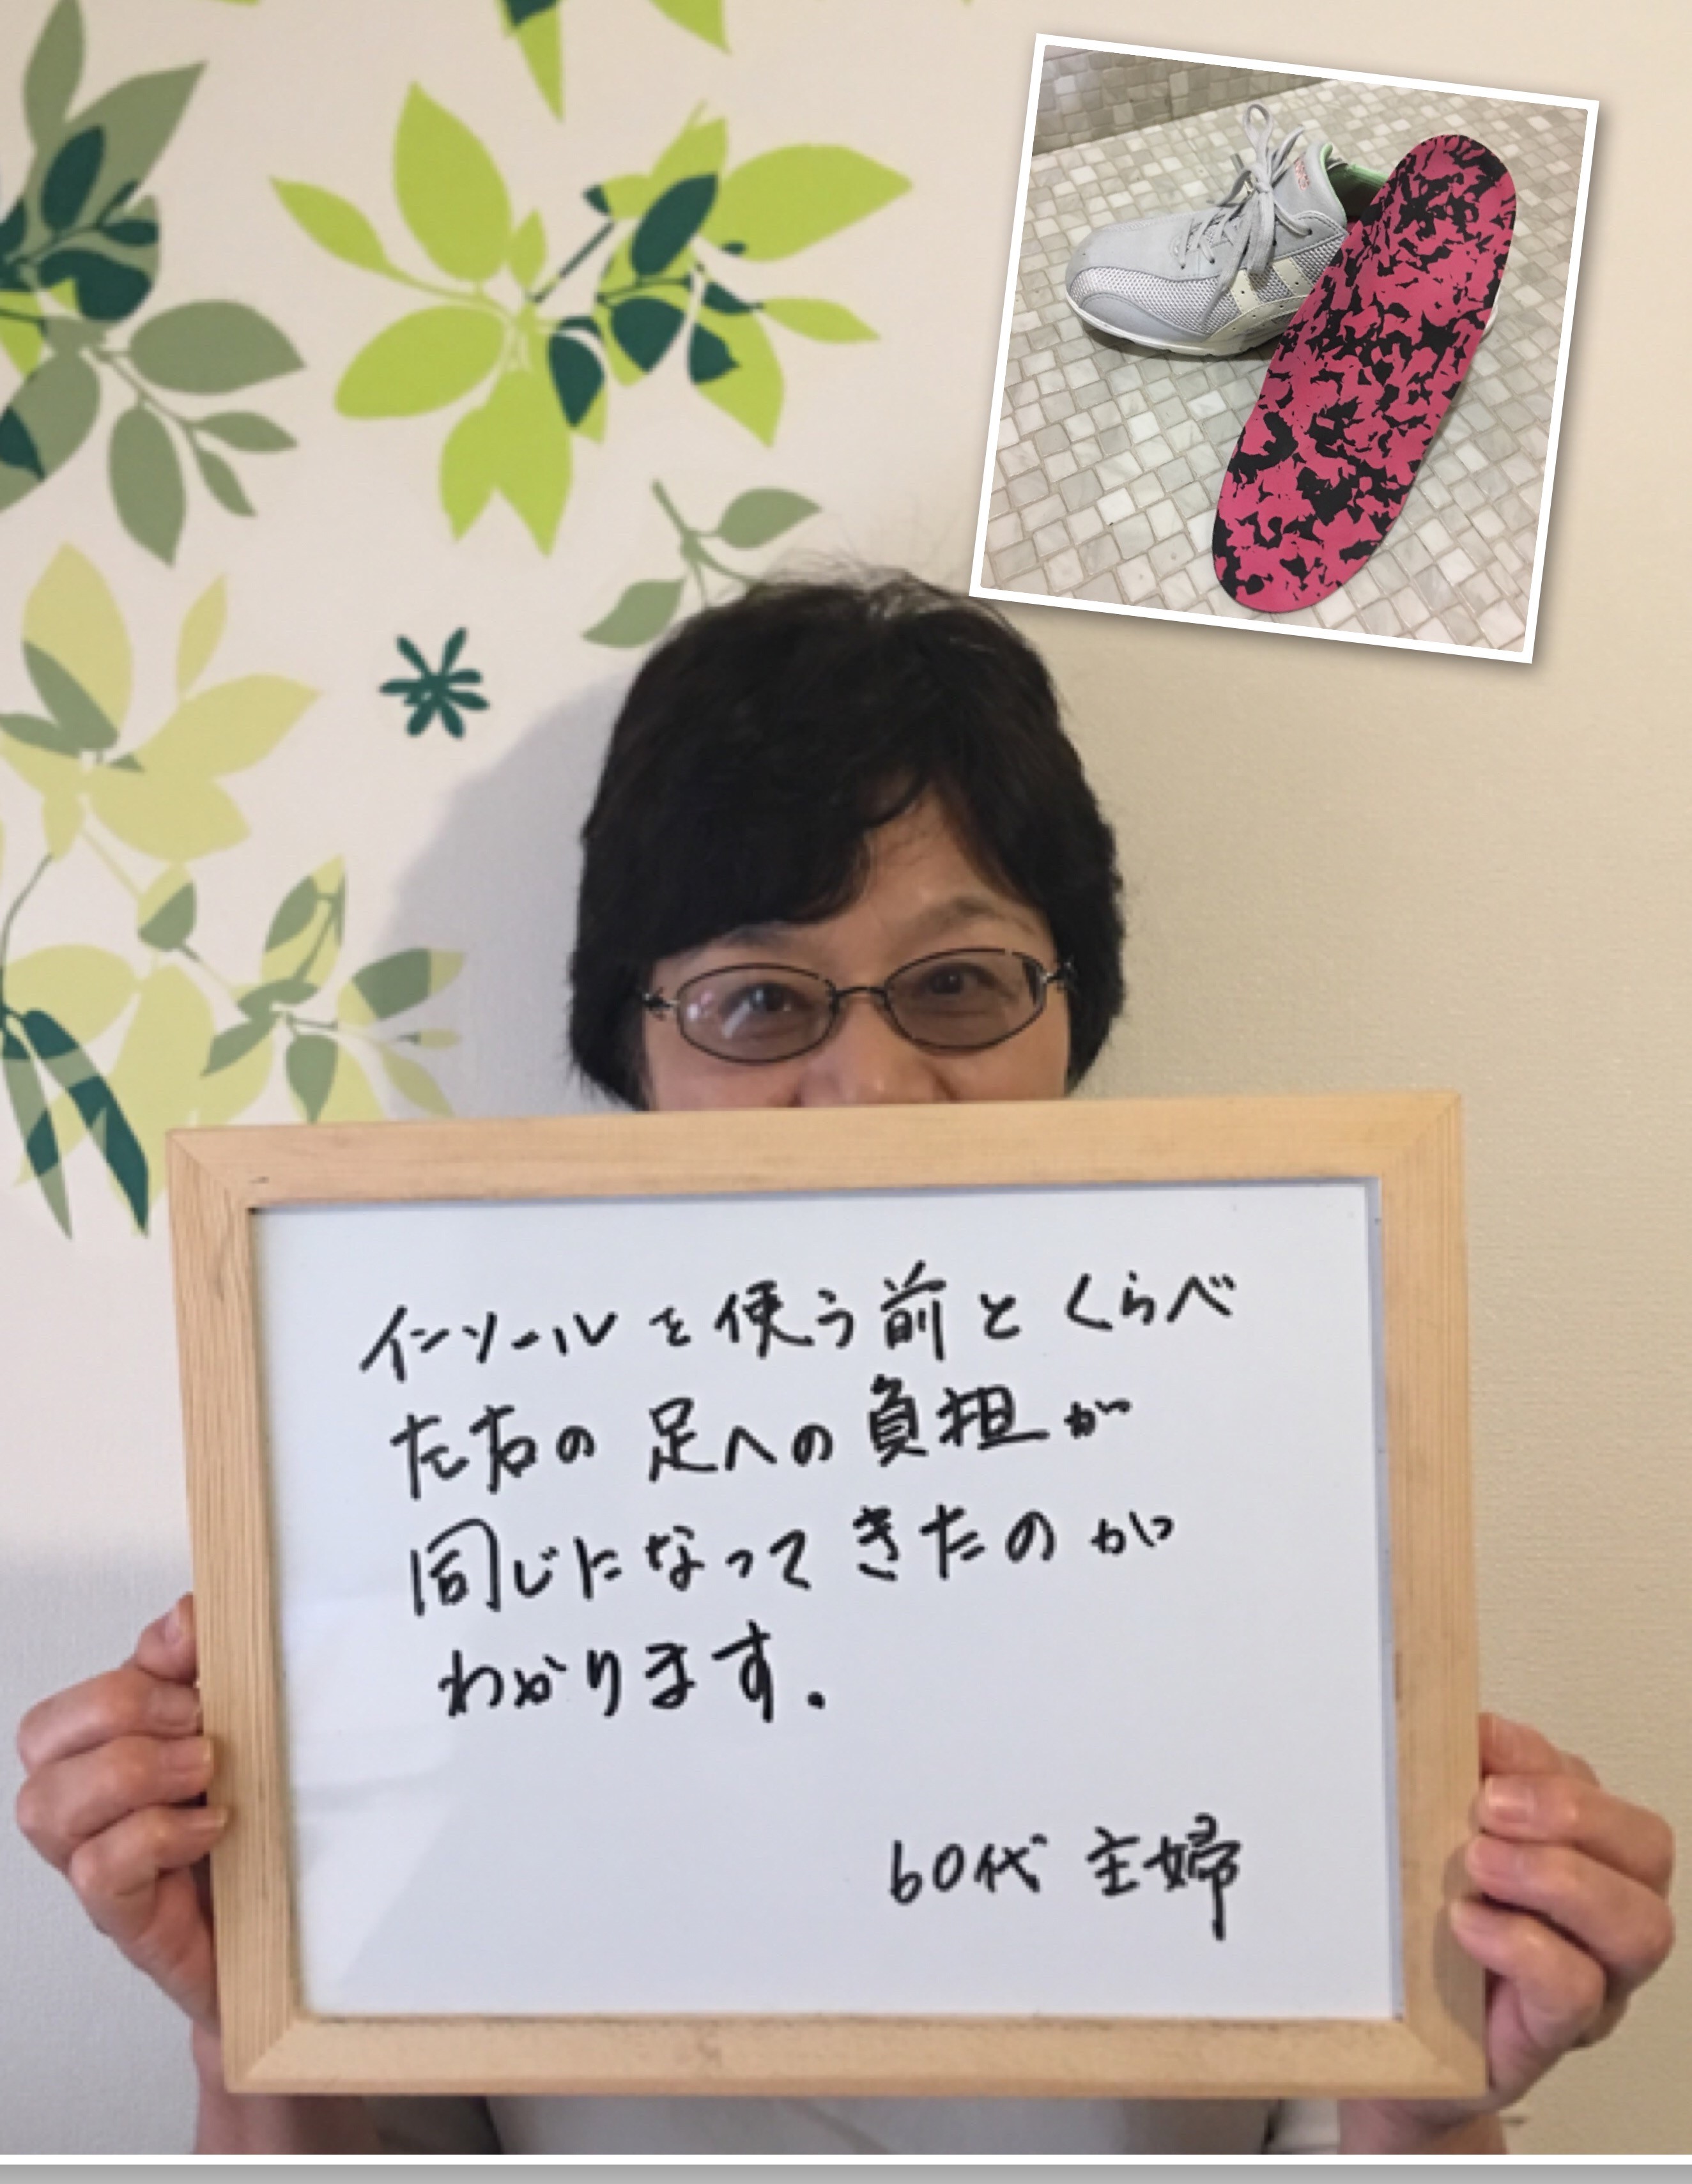 インソールを使う前とくらべ
左右の足への負担が
同じになってきたのが
わかります。
60代 主婦